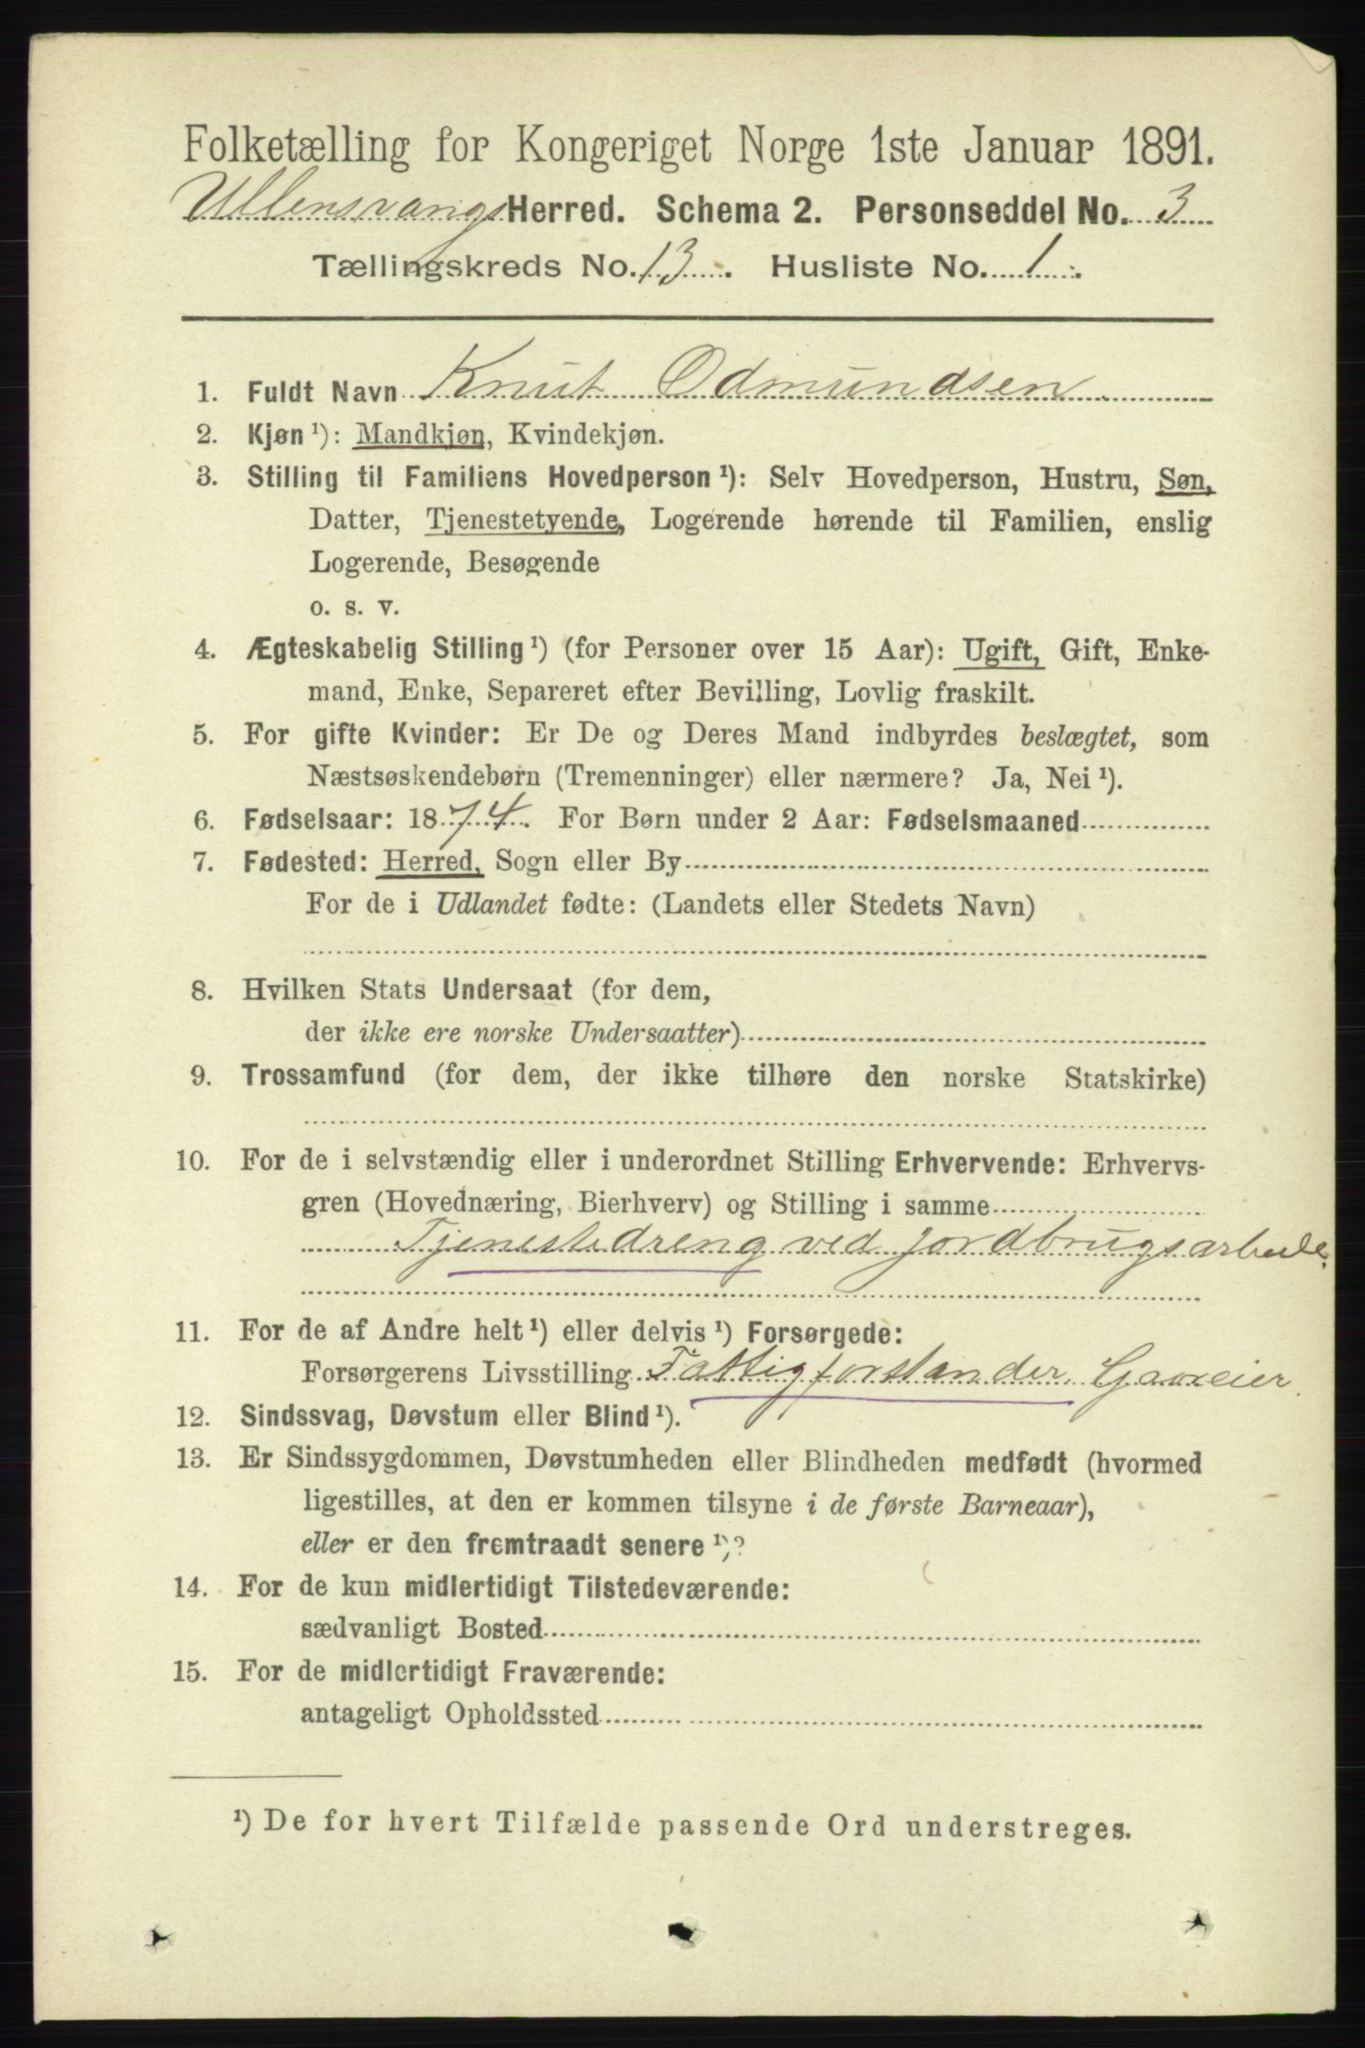 Folketælling for Kongeriget Norge 1ste Januar 1891.
Ullensvangs Herred. Schema 2. Personseddel No. 3
Tællingskreds No. 13. Husliste No. 1.
1. Fuldt Navn Knut Odmundsen
2. Kjøn ¹): Mandkjøn, Kvindekjøn.
3. Stilling til Familiens Hovedperson ¹): Selv Hovedperson, Hustru, Søn,
Datter, Tjenestetyende, Logerende hørende til Familien, enslig
Logerende, Besøgende
o. s. v.
4. Ægteskabelig Stilling ¹) (for Personer over 15 Aar): Ugift, Gift, Enke-
mand, Enke, Separeret efter Bevilling, Lovlig fraskilt.
5. For gifte Kvinder: Er De og Deres Mand indbyrdes beslægtet, som
Næstsøskendebørn (Tremenninger) eller nærmere? Ja, Nei ¹).
6. Fødselsaar: 1874. For Børn under 2 Aar: Fødselsmaaned
7. Fødested: Herred, Sogn eller By
For de i Udlandet fødte: (Landets eller Stedets Navn)
8. Hvilken Stats Undersaat (for dem,
der ikke ere norske Undersaatter)
9. Trossamfund (for dem, der ikke tilhøre den norske Statskirke)
10. For de i selvstændig eller i underordnet Stilling Erhvervende: Erhvervs-
gren (Hovednæring, Bierhverv) og Stilling i samme
Tjenestedreng ved jordbrugsarbeide.
11. For de af Andre helt ¹) eller delvis ¹) Forsørgede:
Forsørgerens Livsstilling Fattigforstander, Gaareier.
12. Sindssvag, Døvstum eller Blind ¹).
13. Er Sindssygdommen, Døvstumheden eller Blindheden medfødt (hvormed
ligestilles, at den er kommen tilsyne i de første Barneaar),
eller er den fremtraadt senere ¹)?
14. For de kun midlertidigt Tilstedeværende:
sædvanligt Bosted
15. For de midlertidigt Fraværende:
antageligt Opholdssted
¹) De for hvert Tilfælde passende Ord understreges.